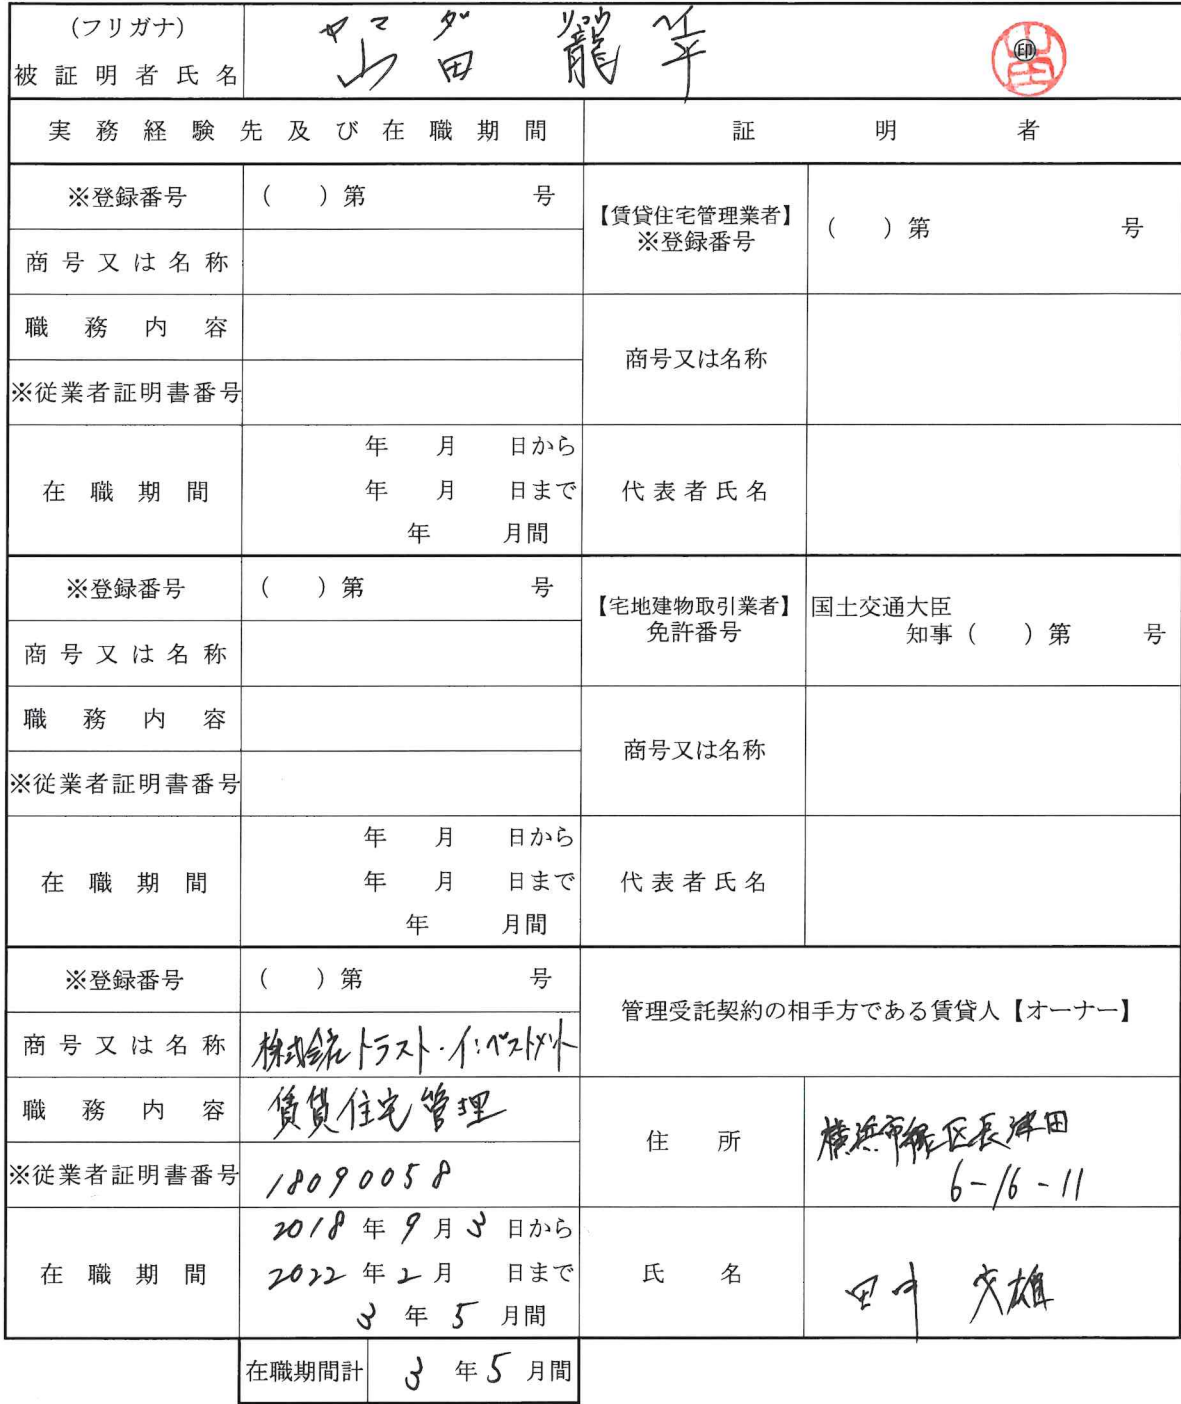 (フリガナ) ヤマダ リュウヘイ
被証明者氏名 山田 龍平 ㊞ 山田
実務経験先及び在職期間 証明者
※登録番号 ( )第 号
【賃貸住宅管理業者】
※登録番号 ( )第 号
商号又は名称
職務内容
商号又は名称
※従業者証明書番号
在職期間
年 月 日から
年 月 日まで
年 月間
代表者氏名
※登録番号 ( )第 号
【宅地建物取引業者】
免許番号
国土交通大臣
知事( )第 号
商号又は名称
職務内容
商号又は名称
※従業者証明書番号
在職期間
年 月 日から
年 月 日まで
年 月間
代表者氏名
※登録番号 ( )第 号
管理受託契約の相手方である賃貸人【オーナー】
商号又は名称 株式会社トラスト・インベストメント
職務内容 賃貸住宅管理
※従業者証明書番号 18090058
住所
横浜市緑区長津田
6-16-11
在職期間
2018年9月3日から
2022年2月 日まで
3年5月間
氏名 田中 文雄
在職期間計 3年5月間